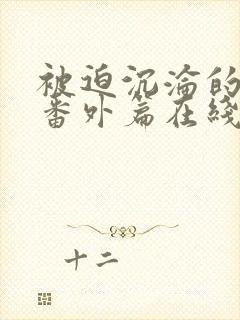 被迫沉淪的
番外篇在綫
十二